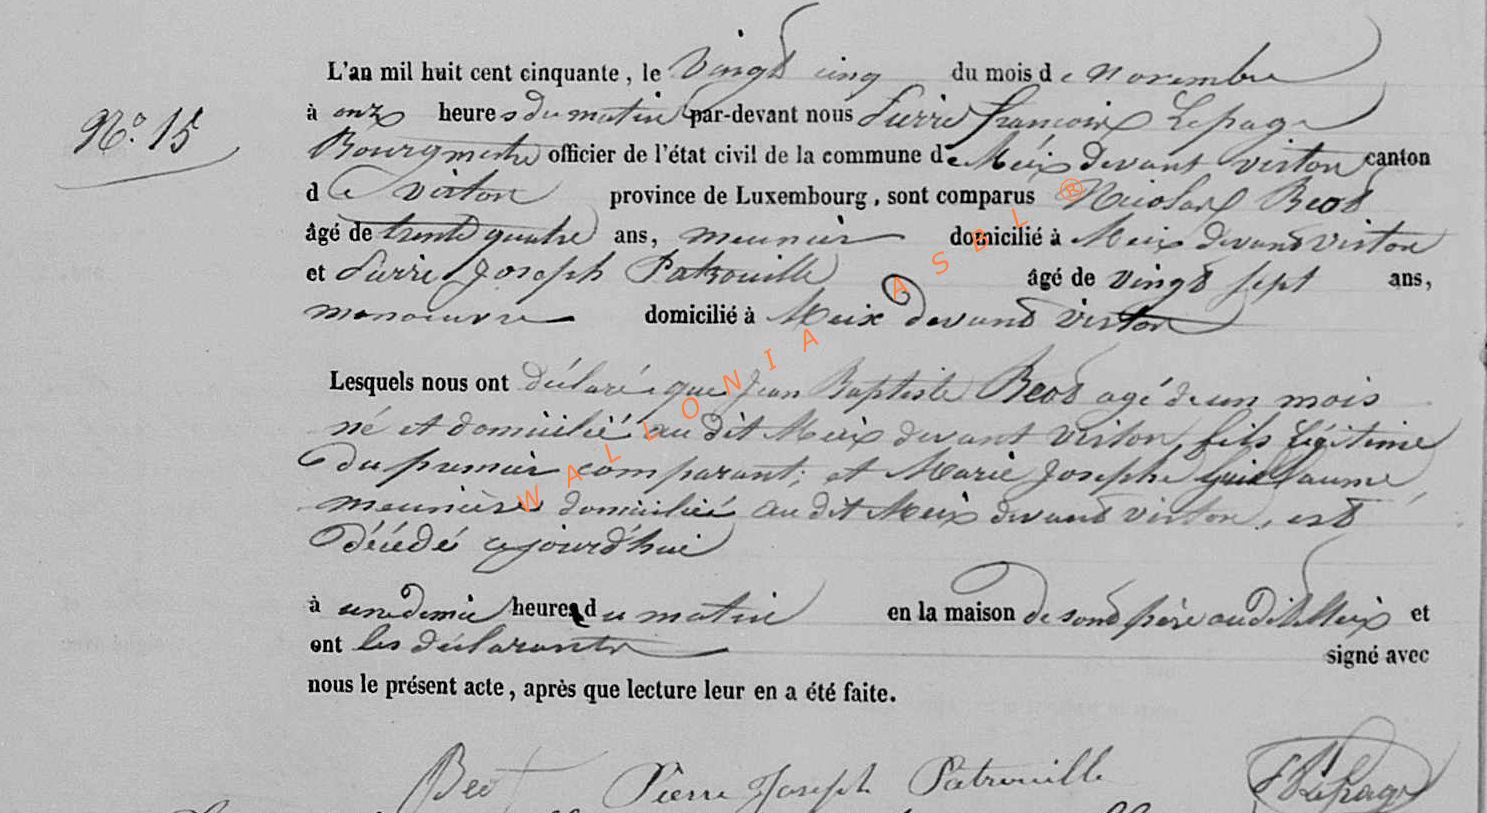 L'an mil huit cent cinquante, le Vingt cinq du mois de Novembre
N° 15
à onze heures du matin par-devant nous Pierre françois Lepage
Bourgmestre officier de l'état civil de la commune de Meix devant virton canton
de virton province de Luxembourg, sont comparus Nicolas Beot
âgé de trente quatre ans, meunier domicilié à Meix devant virton
et Pierre Joseph Patrouille âgé de vingt sept ans,
manoeuvre domicilié à Meix devant virton
Lesquels nous ont déclaré que Jean Baptiste Beot agé de un mois
né et domicilié au dit Meix devant virton, fils légitime
du premier comparant; et Marie Joseph Guillaume
meunière domiciliée au dit Meix devant virton, est
décédé cejourd'hui
à une demie heure du matin en la maison de sond père audit Meix et
ont les déclarants signé avec
nous le présent acte, après que lecture leur en a été faite.
Beot Pierre Joseph Patrouille Lepage
WALLONIA ASBL ®